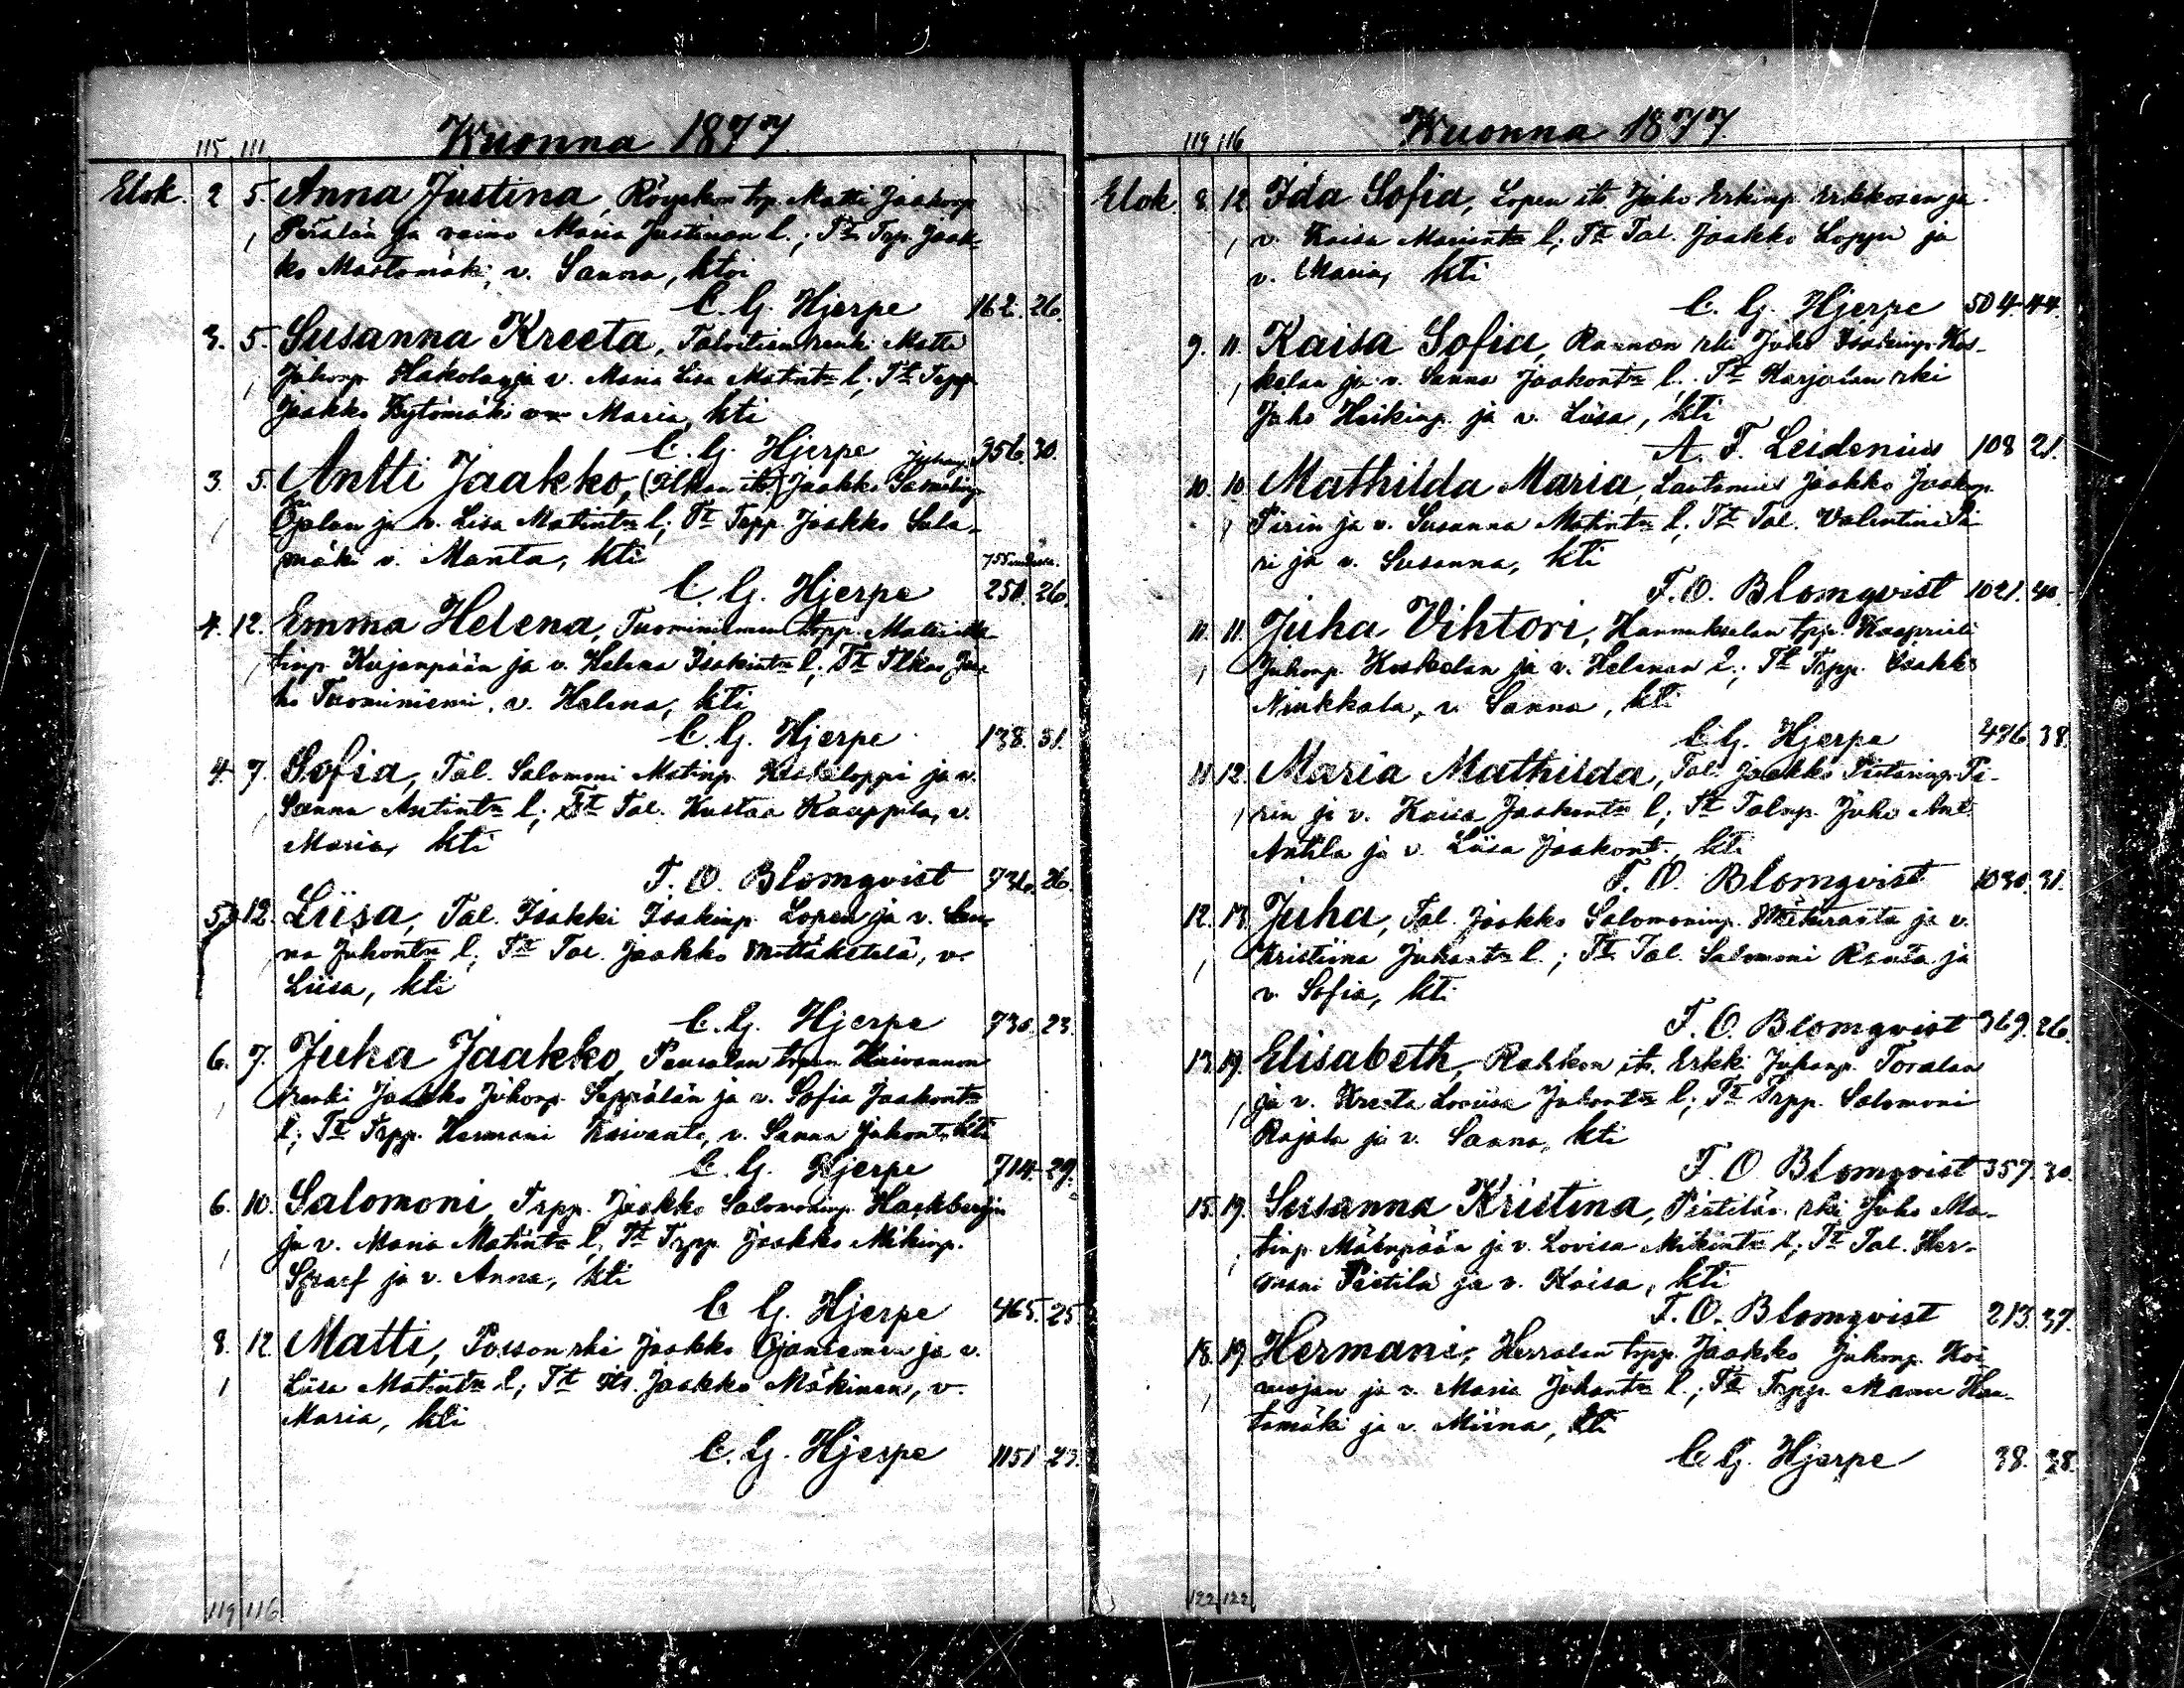 Kuonna 1877.
115 111
Elok. 2 5. Anna Justina, Röyskön trp. Matti Jaakonp
Perälän ja vaimo Maria Justinan l.; Tt Trp. Jaak-
ko Mastomäki, v. Sanna, ktoi
C. G. Hjerpe 162. 26.
3. 5. Susanna Kreeta, Talvitien renki Matti
Juhonp. Hakolan ja v. Maria Lisa Matintr l; Tt Trpp.
Jaakko Kytömäki v. Maria, kti
C. G. Hjerpe 956. 30.
3. 5. Antti Jaakko, (Ilkan its.) Jaakko
Ojalan ja v. Lisa Matintr l; Tt Trpp. Jaakko Sala-
mäki v. Manta, kti
C. G. Hjerpe 250. 26.
4. 12. Emma Helena, Tuominiemen trpp. Matti Ma-
tinp. Kujanpään ja v. Helena Isakintr l; Tt Ilkan Jaa-
ko Tuominiemi, v. Helena, kti
C. G. Hjerpe 138. 31.
4. 7. Sofia, Tal. Salomoni Matinp. Keskiloppi ja v.
Sanna Antintr l; Tt Tal. Kustaa Kauppila, v.
Maria, kti
F. O. Blomqvist 736. 26.
5. 12. Liisa, Tal. Isakki Isakinp. Lopen ja v. San-
na Juhontr l; Tt Tal. Jaakko Mottäketelä, v.
Liisa, kti
C. G. Hjerpe 730. 23.
6. 7. Juha Jaakko, Pausalan trpan Kaivannon
renki Jaakko Juhonp. Seppälän ja v. Sofia Jaakontr
l; Tt Trpp. Hermani Kaivanto, v. Sanna Juhontr, kti
C. G. Hjerpe 714. 29.
6. 10. Salomoni, Trpp. Jaakko Salomoninp. Hackbergin
ja v. Maria Matintr l; Tt Trpp. Jaakko Mikinp.
Sparf ja v. Anna, kti
C. G. Hjerpe 465. 25
8. 12. Matti, Posson rki Jaakko Ojaniemen ja v.
Liisa Matintr l; Tt Its. Jaakko Mäkinen, v.
Maria, kti
C. G. Hjerpe 1151 23.
119 116
Kuonna 1877.
119 116
Elok. 8. 12. Ida Sofia, Lopen its Juho Erkinp. Erkkosen ja
v. Kaisa Mariantr l; Tt Tal. Jaakko Loppi ja
v. Maria, kti
C. G. Hjerpe 504. 44.
9. 11. Kaisa Sofia, Rannan rki Juho Isakinp. Kos-
kelan ja v. Sanna Jaakontr l.. Tt Karjalan rki
Juho Heikinp. ja v. Liisa, kti
A. F. Leidenius 108 21.
10. 10 Mathilda Maria, Lautamies Jaakko Jaakonp.
Pirin ja v. Susanna Matintr l; Tt Tal. Valentini Pi-
ri ja v. Susanna, kti
F. O. Blomqvist 1021. 40.
11. 11. Juha Vihtori, Hannukselan trpp. Kaaprieli
Juhonp. Koskelan ja v. Helenan l.; Tt Trpp. Isakki
Niukkala, v. Sanna, kti
C. G. Hjerpe 476. 38.
11. 12. Maria Mathilda, Tal. Jaakko Pietarinp. Pi-
rin ja v. Kaisa Jaakontr l; Tt Talnp. Juho Ant.
Antila ja v. Liisa Jaakont., kti
F. O. Blomqvist 1030. 31.
12. 13. Juha, Tal. Jaakko Salomoninp. Mäkiranta ja v.
Kristiina Juhontr l.; Tt Tal. Salomoni Ranta ja
v. Sofia, kti
F. O. Blomqvist 369. 26.
13. 19. Elisabeth, Rahkon its. Erkki Juhonp. Toralan
ja v. Kreeta Loviisa Juhontr l; Tt Trpp. Salomoni
Rajala ja v. Sanna, kti
F. O Blomqvist 357. 30.
15. 19. Susanna Kristina, Pistilän rki Juho Ma-
tinp. Mäenpään ja v. Lovisa Mikintr l; Tt Tal. Her-
mani Pistilä ja v. Kaisa, kti
F. O. Blomqvist 213. 37.
18. 19 Hermani, Herralan trpp. Jaakko Juhonp. Koi-
vuojan ja v. Maria Juhontr l.; Tt Trpp. Manu Hau-
tamäki ja v. Miina, kti
C. G. Hjerpe 38. 38.
122 122